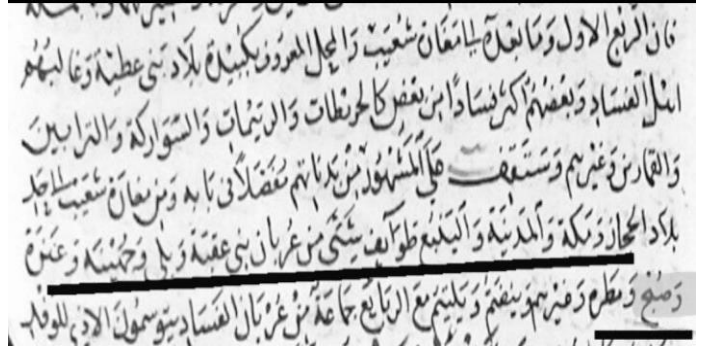 فان الربع الاول وما بعده الى مغان شعيب والمحل المعروف بكبيدة بلاد بني عطية وغالبهم
اهل الفساد وبعضهم اكثر فسادا من بعض كالحريطات والرتيمات والسواركة والترابين
والقمارس وغيرهم وستقف على المشهود من بدناتهم مفصلا في بابه ومن مغارة شعيب الى حد
بلاد الحجاز ومكة والمدينة والينبع طوايف شتى من عربان بني عقبة وبلي وجهينة وعنزة
وصبح ومطره وغيرهم وينضم ويلتئم مع الرابع جماعة من عربان الفساد يتوسمون الاذى للوفد